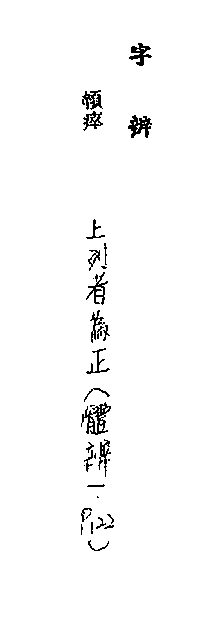 字辨
顇瘁
上列者為正(體辨一.P122)